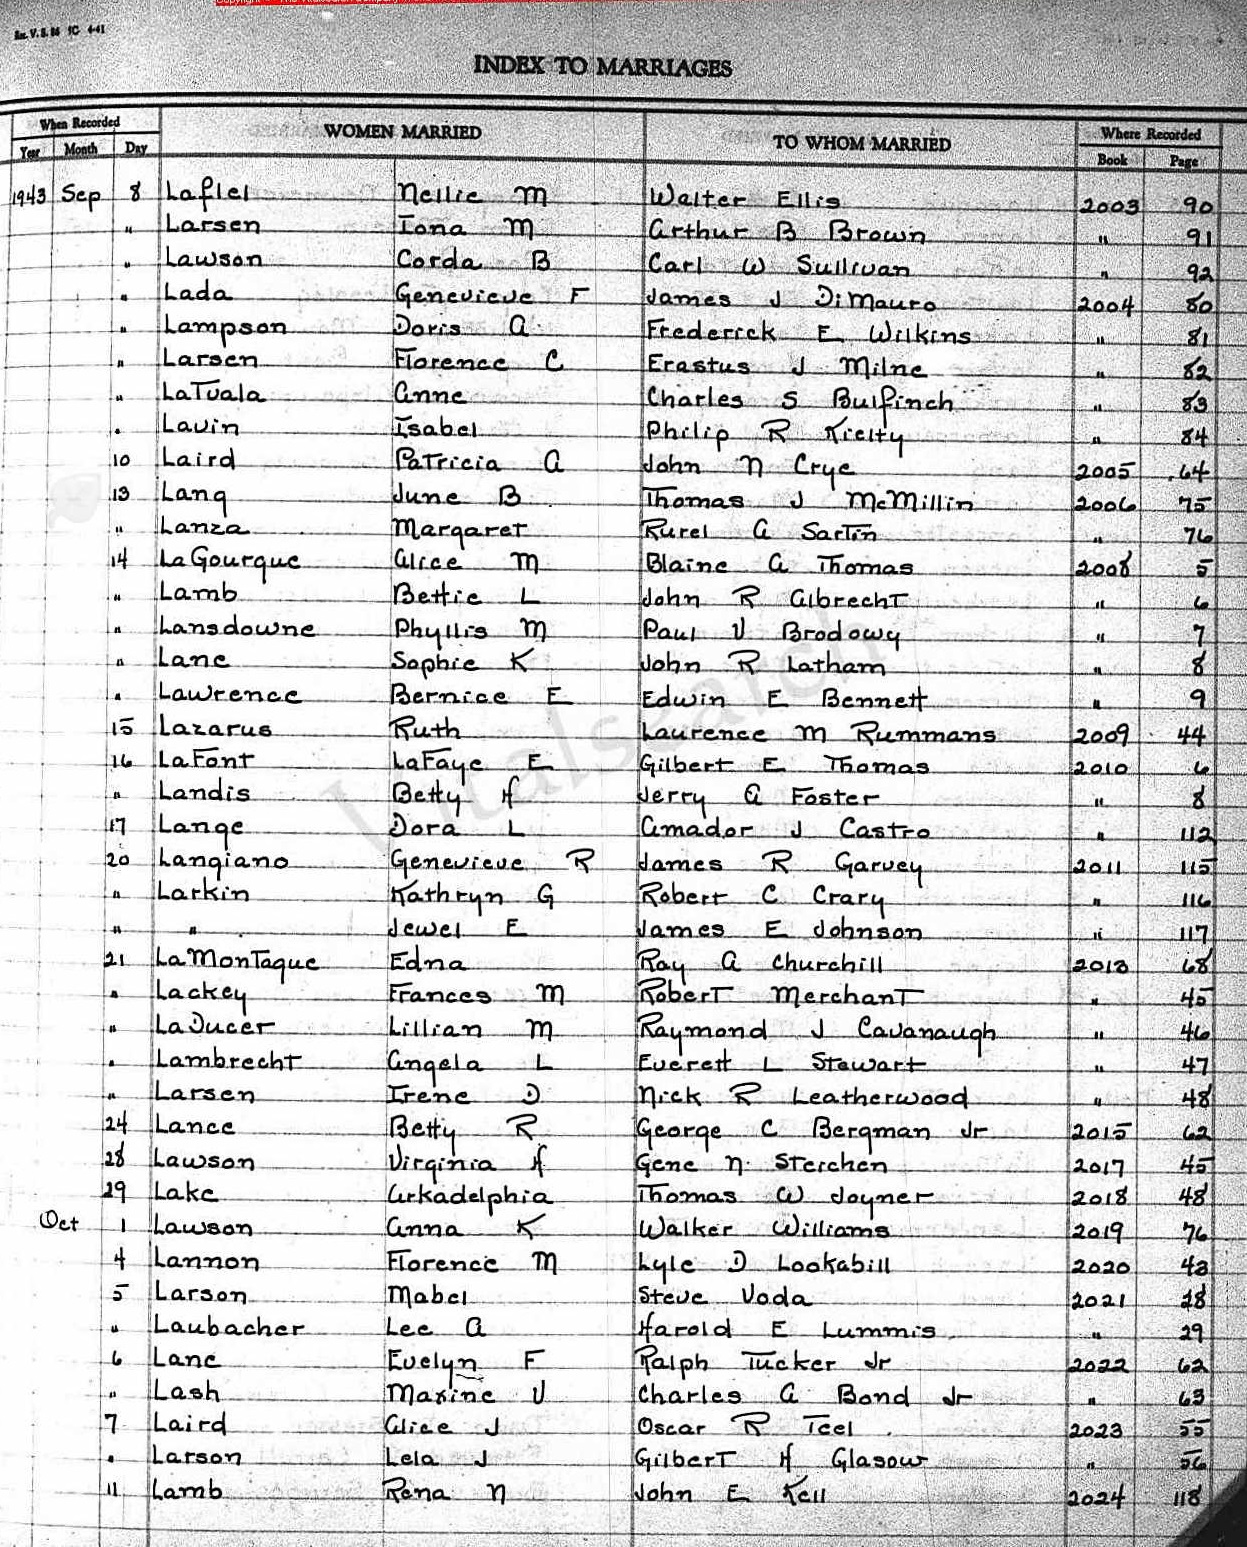 Rec. V. S. 86 1C 4-41
INDEX TO MARRIAGES
When Recorded WOMEN MARRIED TO WHOM MARRIED Where Recorded
Year Month Day Book Page
1943 Sep 8 Laflel Nellie M Walter Ellis 2003 90
" Larsen Iona M Arthur B Brown " 91
" Lawson Corda B Carl W Sullivan " 92
" Lada Genevieve F James J DiMauro 2004 80
" Lampson Doris A Frederick E Wilkins " 81
" Larsen Florence C Erastus J Milne " 82
" LaTuala Anne Charles S Bulfinch " 83
" Lavin Isabel Philip R Kielty " 84
10 Laird Patricia A John N Crye 2005 64
13 Lang June B Thomas J McMillin 2006 75
" Lanza Margaret Rurel A Sartin " 76
14 LaGourgue Alice M Blaine A Thomas 2008 5
" Lamb Bettie L John R Albrecht " 6
" Lansdowne Phyllis M Paul V Brodowy " 7
" Lane Sophie K John R Latham " 8
" Lawrence Bernice E Edwin E Bennett " 9
15 Lazarus Ruth Laurence M Rummans 2009 44
16 LaFont LaFaye E Gilbert E Thomas 2010 6
" Landis Betty H Jerry A Foster " 8
17 Lange Dora L Amador J Castro " 112
20 Langiano Genevieve R James R Garvey 2011 115
" Larkin Kathryn G Robert C Crary " 116
" " Jewel E James E Johnson " 117
21 LaMontague Edna Ray A Churchill 2013 68
" Lackey Frances M Robert Merchant " 45
" LaDucer Lillian M Raymond J Cavanaugh " 46
" Lambrecht Angela L Everett L Stewart " 47
" Larsen Irene D Nick R Leatherwood " 48
24 Lance Betty R George C Bergman Jr 2015 62
28 Lawson Virginia H Gene N Sterchen 2017 45
29 Lake Arkadelphia Thomas W Joyner 2018 48
Oct 1 Lawson Anna K Walker Williams 2019 76
4 Lannon Florence M Lyle D Lookabill 2020 43
5 Larson Mabel Steve Voda 2021 28
" Laubacher Lee A Harold E Lummis " 29
6 Lane Evelyn F Ralph Tucker Jr 2022 62
" Lash Maxine V Charles A Bond Jr " 63
7 Laird Alice J Oscar R Teel 2023 55
" Larson Lela J Gilbert H Glasow " 56
11 Lamb Rena N John E Kell 2024 118
Vitalsearch